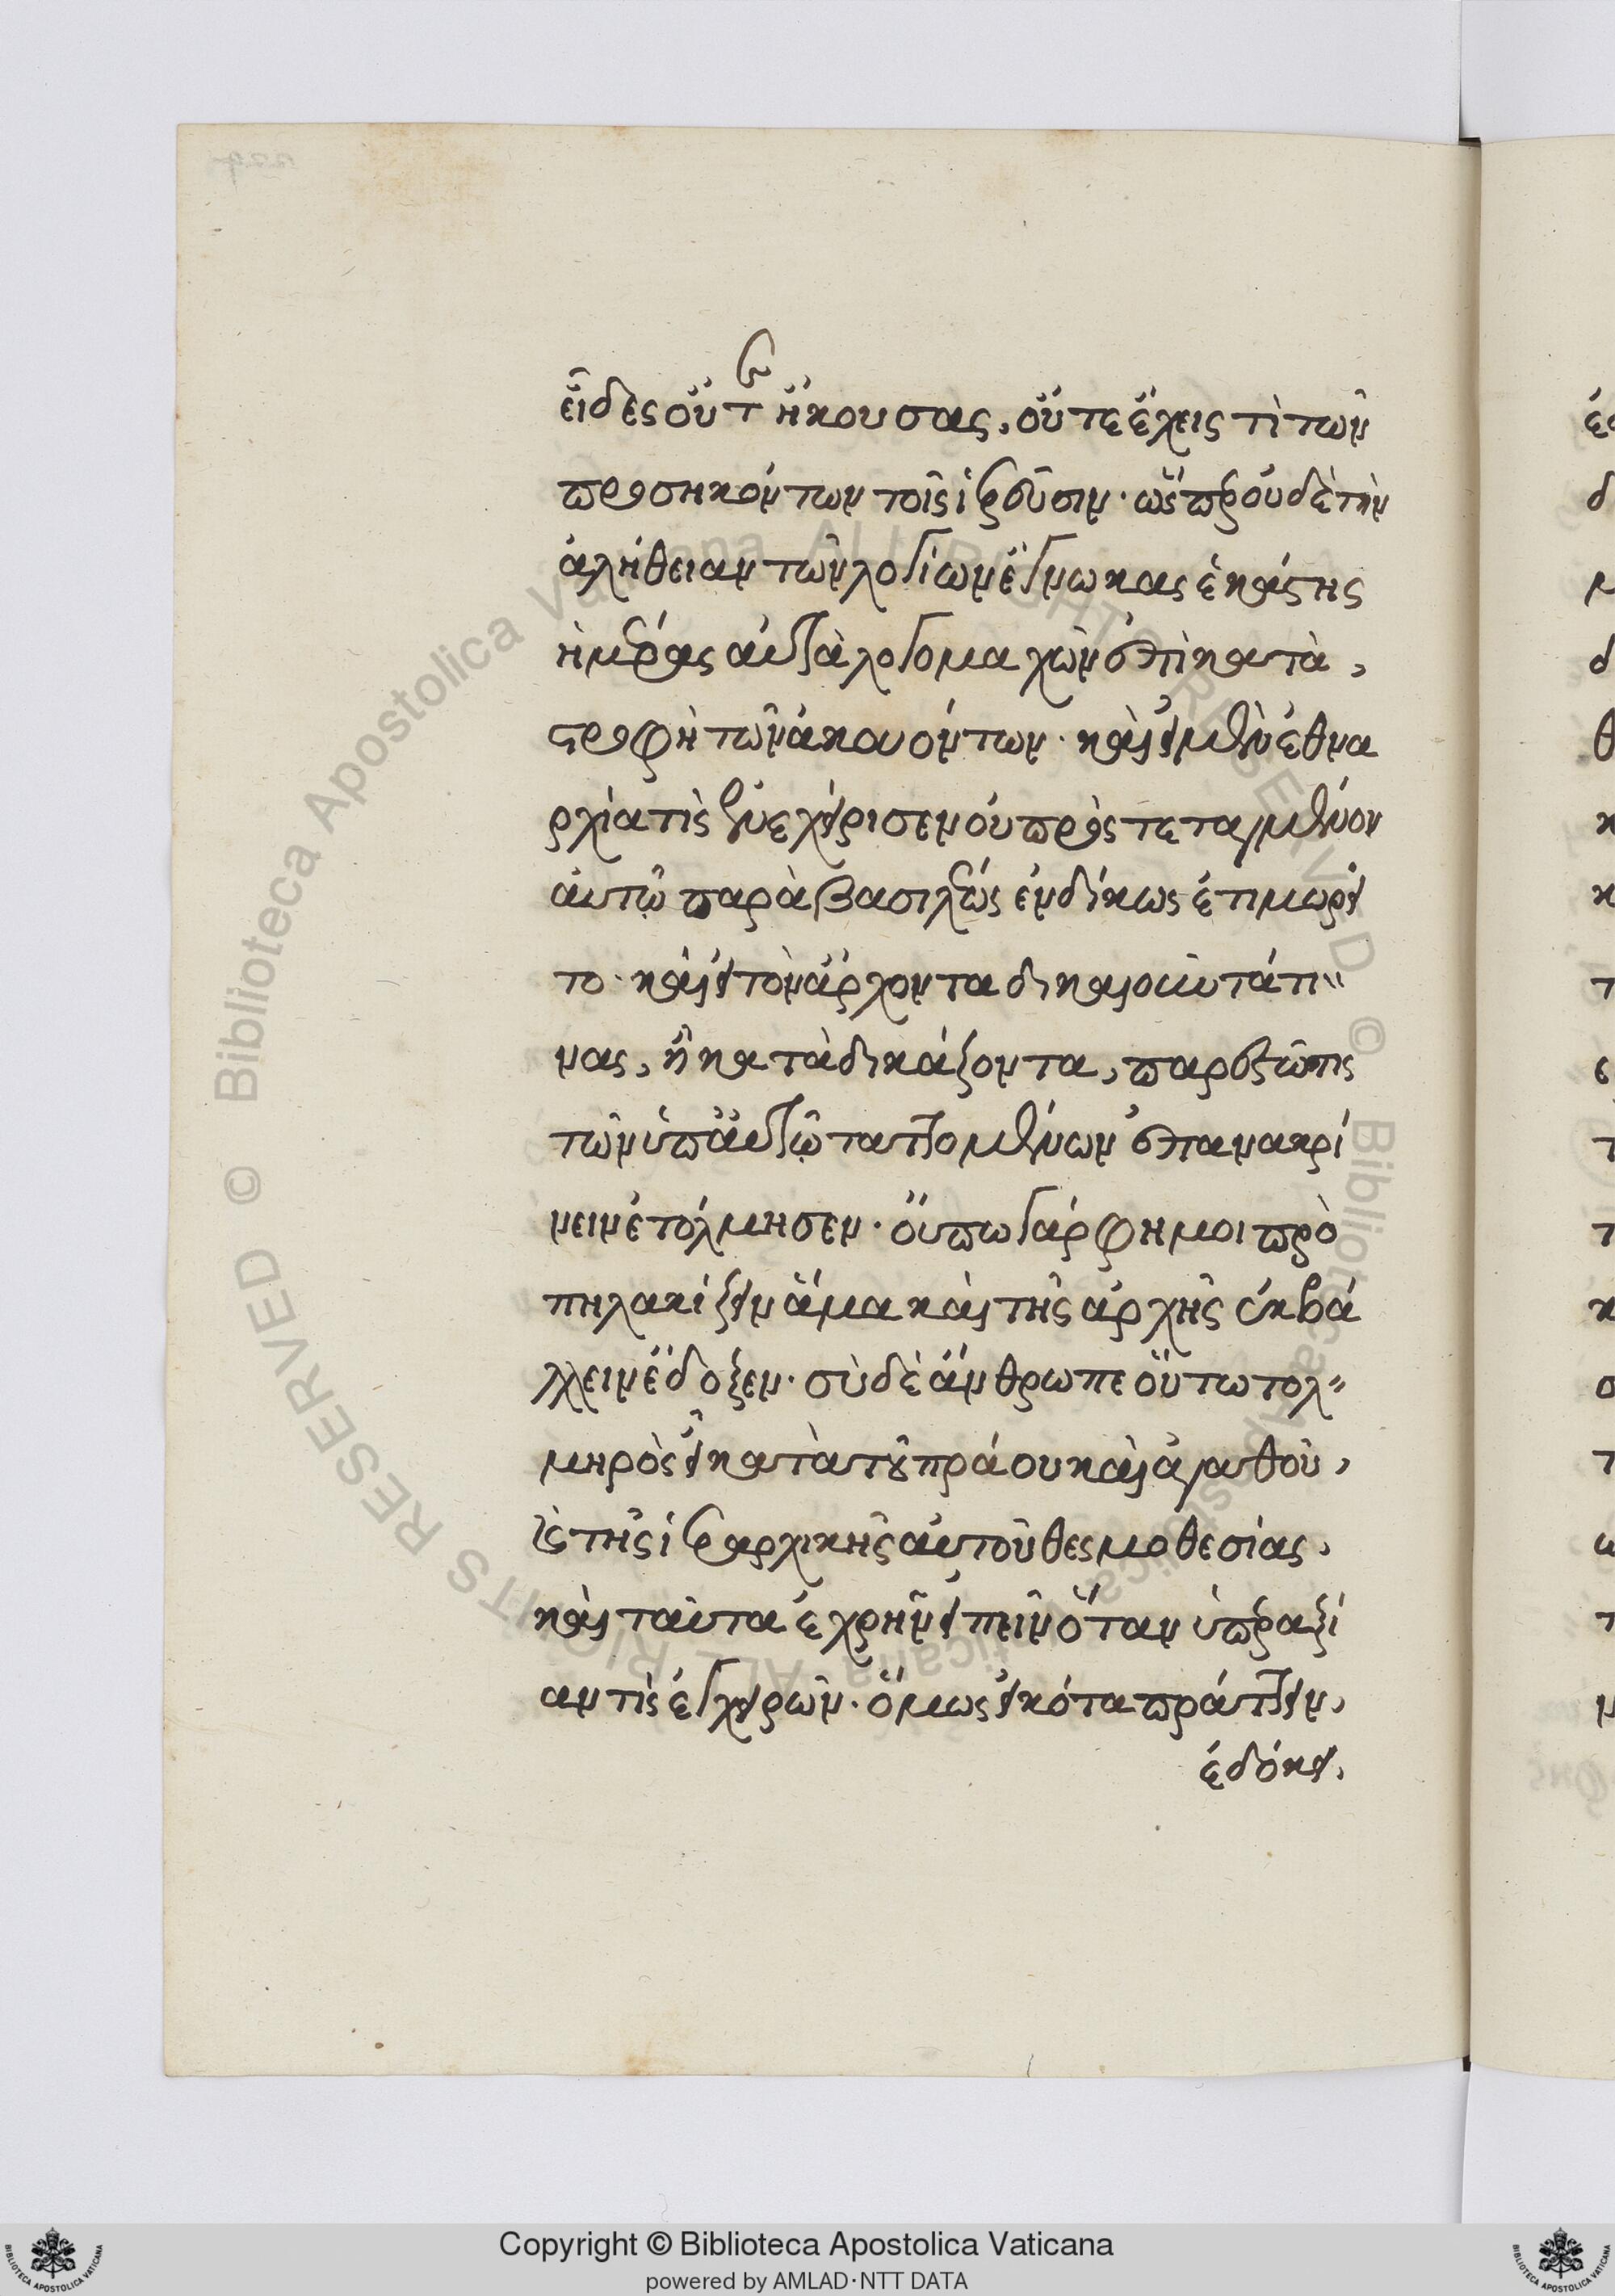 εἶδες οὔτ ἤκουσας, οὔτε ἔχεις τὶ τῶν
προσηκόντων τοῖς ἱερεῦσιν· ὥσπερ οὐδὲ τὴν
ἀλήθειαν τῶν λογίων ἔγνωκας ἑκάστης
ἡμέρας αὐτὰ λογομαχῶν ἐπὶ κατα,
στροφὴ τῶν ἀκουόντων· καὶ εἰ μὲν ἐθνα
ρχία τὶς ἐνεχείρισεν οὐ προστεταγμένον
αὐτῷ παρὰ βασιλέως ἐνδίκως ἐτιμωρεῖ
το· καὶ εἰ τὸν ἄρχοντα δικαιοῦντά τι
νας, ἢ καταδικάζοντα, παρεστώς τις
τῶν ὑπ' αὐτῷ ταττομένων ἐπανακρί
νειν ἐτόλμησεν· οὔπω γάρ φημι προ
πηλακίζειν ἅμα καὶ τῆς ἀρχῆς ἐκβά
λλειν ἔδοξεν· σὺ δὲ ἄνθρωπε οὕτω τολ
μηρὸς εἶ κατὰ τοῦ πράου καὶ ἀγαθοῦ,
καὶ τῆς ἱεραρχικῆς αὐτοῦ θεσμοθεσίας,
καὶ ταῦτα ἐχρῆν εἰπεῖν ὅταν ὑπὲρ ἀξί
αν τὶς ἐγχειρῶν· ὅμως εἰκότα πράττειν,
ἐδόκει,
Copyright © Biblioteca Apostolica Vaticana
powered by AMLAD·NTT DATA